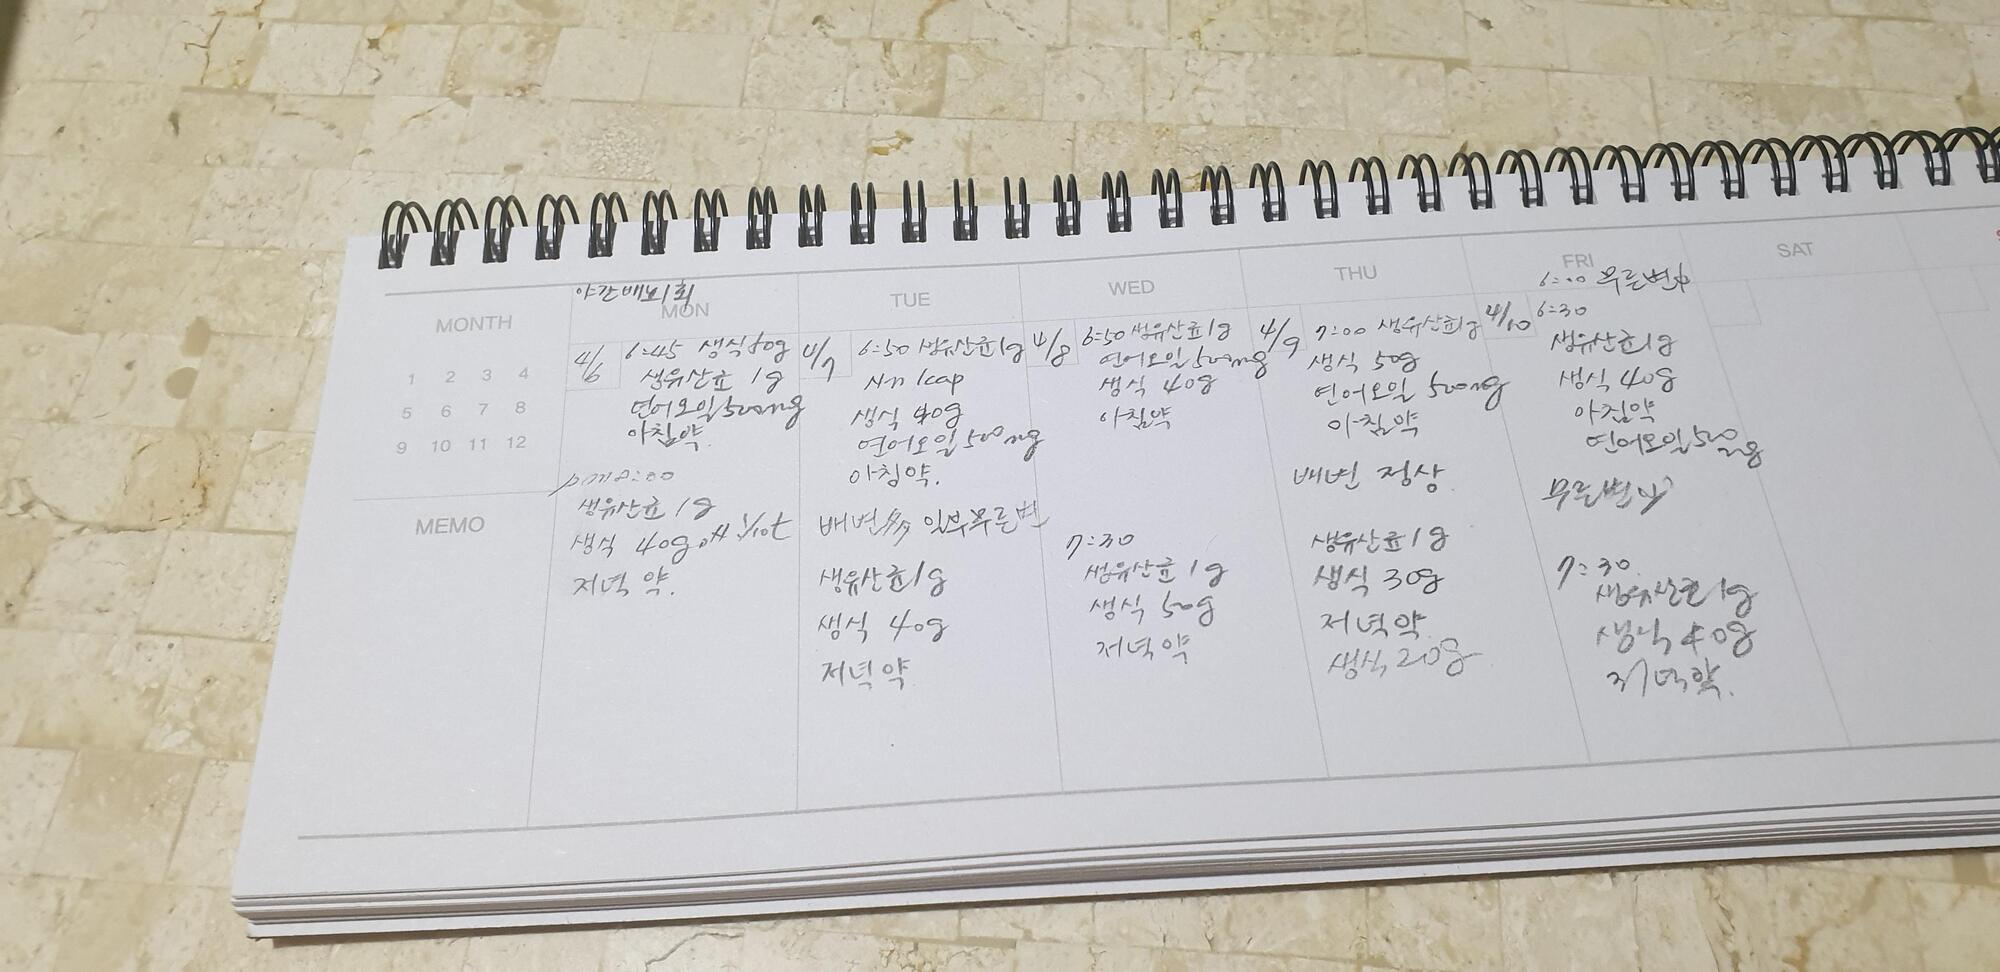 MONTH
1 2 3 4
5 6 7 8
9 10 11 12
MEMO
MON
4/6
6:45 생식
생유산균 1g
연어오일500mg
아침약.
생유산균 1g
생식 40g
저녁 약.
TUE
4/7
6:50 생유산균1g
1cap
생식 40g
연어오일500mg
아침약.
배변 일부무른변
생유산균1g
생식 40g
저녁약
WED
4/8
6:50 생유산균1g
연어오일500mg
생식 40g
아침약
7:30
생유산균 1g
생식 50g
저녁약
THU
4/9
7:00 생유산균1g
생식 50g
연어오일 500mg
아침약
배변 정상
생유산균1g
생식 30g
저녁약
생식 20g
FRI
6:00 무른변
4/10
6:30
생유산균1g
생식 40g
아침약
연어오일
무른변
7:30
생유산균1g
생식 40g
저녁약.
SAT